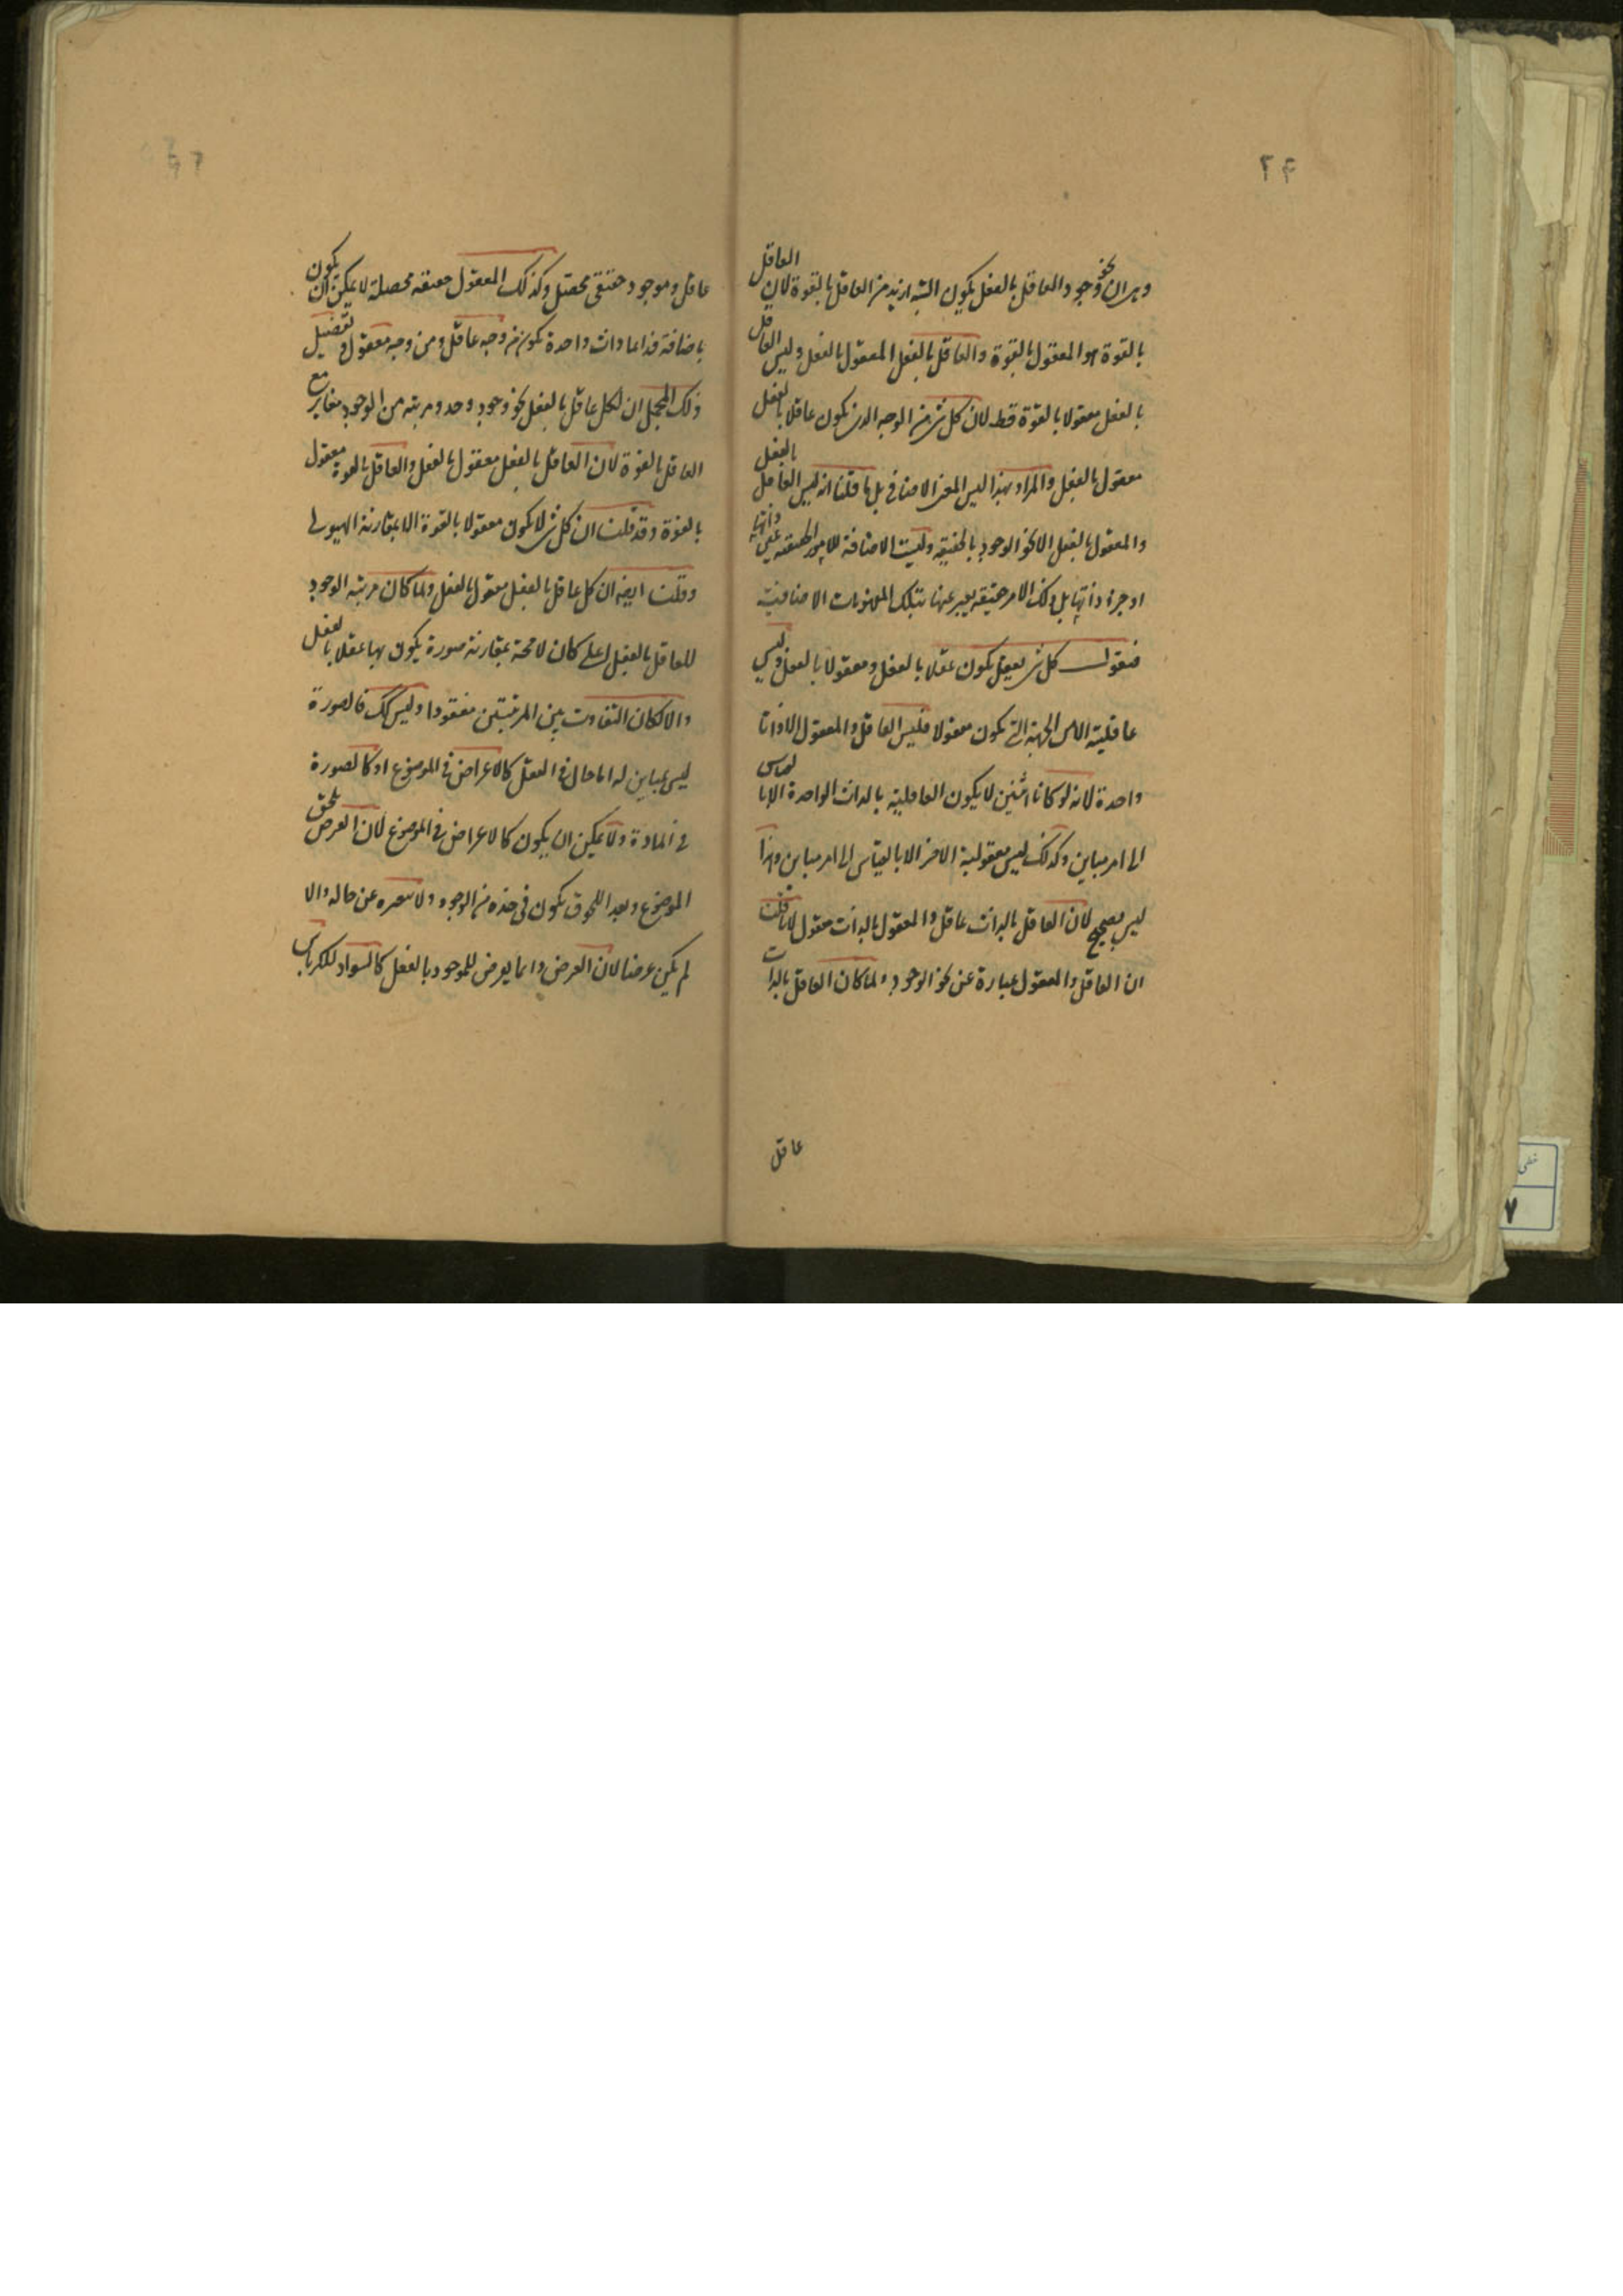 ٢٤
وهو ان نحو وجود العاقل بالفعل يكون البتة ازيد من العاقل بالقوة لان العاقل
بالقوة هو المعقول بالقوة والعاقل بالفعل المعقول بالفعل وليس العاقل
بالفعل معقولا بالقوة قط لان كل شئ من الوجه الذى يكون عاقلا بالفعل
معقول بالفعل والمراد بهذا ليس المعنى الاضافى بل ما قلنا انه ليس العاقل بالفعل
والمعقول بالفعل الا نحو الوجود بالحقيقة وليست الاضافة للامور الحقيقية عين ذاتها
او جزء ذاتها بل ذلك الامر حقيقة يعبر عنها بتلك المفهومات الاضافية
فنقول كل شئ يعقل يكون عقلا بالفعل ومعقولا بالفعل وليس
عاقليته الا من الجهة التى يكون معقولا فليس العاقل والمعقول الا ذاتا
واحدة لانه لو كانا اثنين لا يكون العاقلية بالذات الواحدة الا بالقياس
الى امر مباين وكذلك ليس معقولية الاخر الا بالقياس الى امر مباين وهذا
ليس بصحيح لان العاقل بالذات عاقل والمعقول بالذات معقول لما قلنا
ان العاقل والمعقول عبارة عن نحو الوجود ولما كان العاقل بالذات
عاقل
عاقل وموجود حقيقى محصل وكذلك المعقول حقيقة محصلة لا يمكن ان يكون
باضافة فذا عاوات واحدة يكون من وجه عاقل ومن وجه معقول وتفصيل
ذلك المجمل ان لكل عاقل بالفعل نحو وجود وحد ومرتبة من الوجود مغاير مع
العاقل بالقوة لان العاقل بالفعل معقول بالفعل والعاقل بالقوة معقول
بالقوة وقد قلت ان كل شئ لا يكون معقولا بالقوة الا بمقارنة الهيولى
وقلت ايضا ان كل عاقل بالفعل معقول بالفعل ولما كان مرتبة الوجود
للعاقل بالفعل اعلى كان لا محة بمقارنة صورة يكون بها عقلا بالفعل
والا لكان التفاوت بين المرتبتين مفقودا وليس كك فالصورة
ليس بمباين له اما حال فى العقل كالاعراض فى الموضوع او كالصورة
فى المادة ولا يمكن ان يكون كالاعراض فى الموضوع لان العرض يلحق
الموضوع وبعد اللحوق يكون فى حده من الوجود ولا عن حاله والا
لم يكن عرضا لان العرض دائما يعرض للموجود بالفعل كالسواد للكرباس